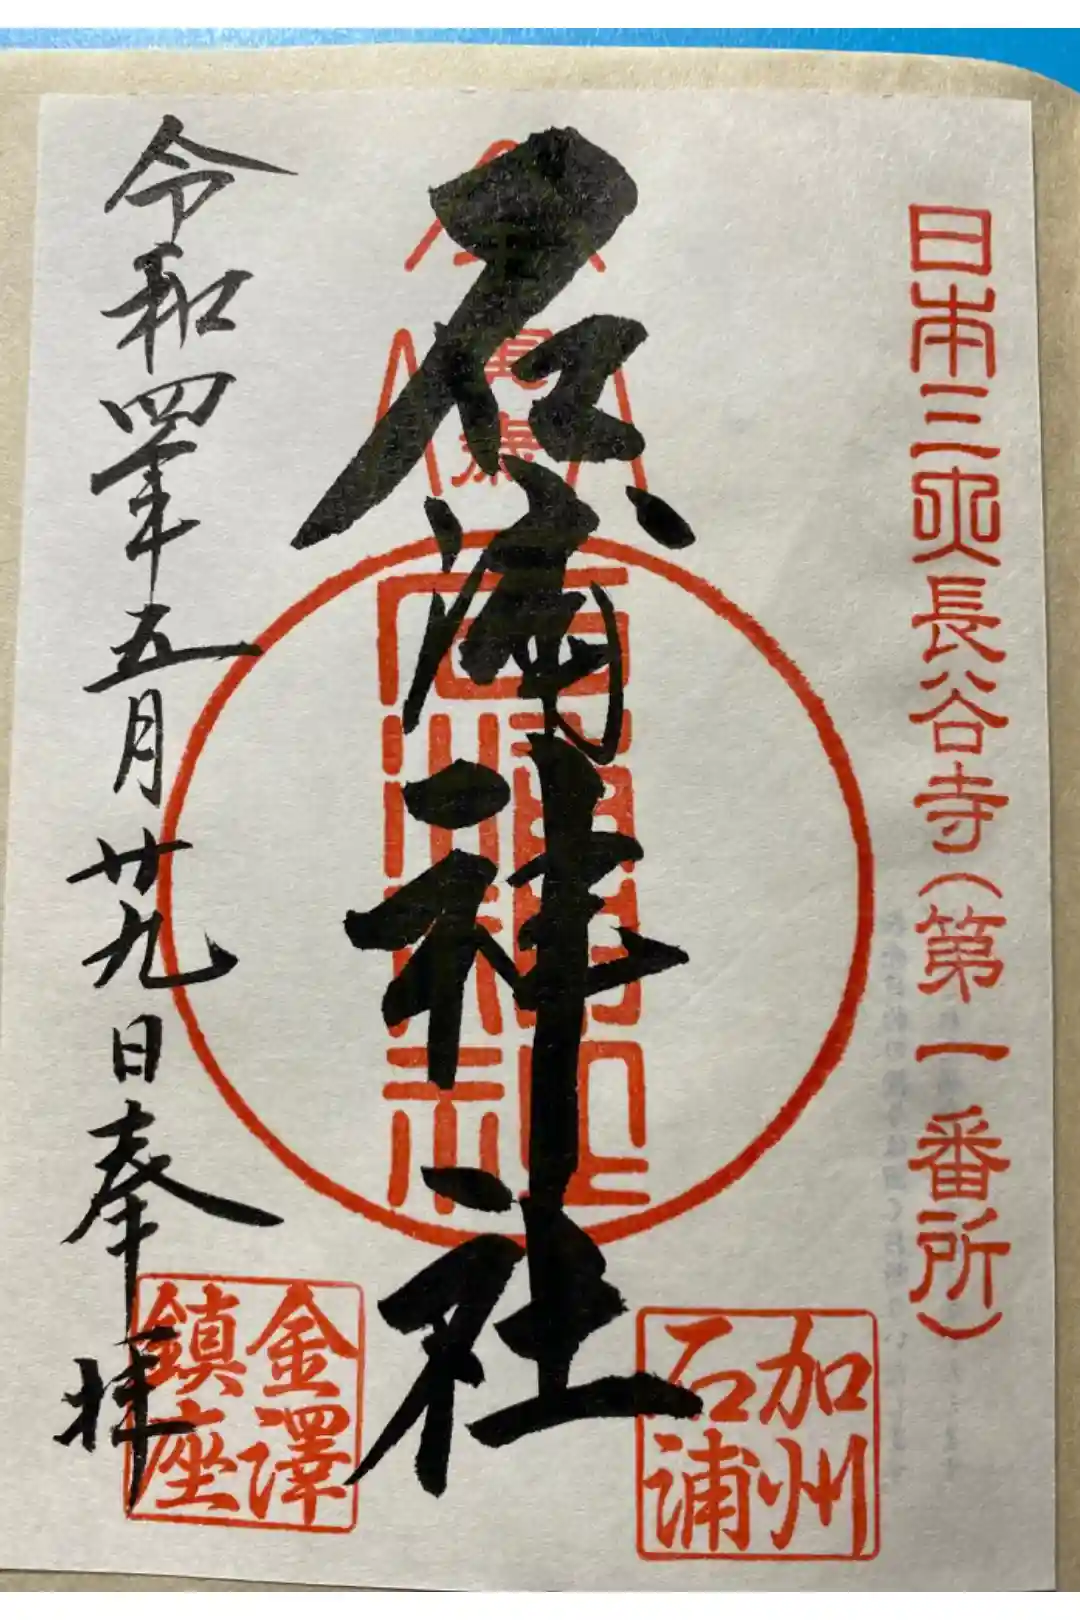 日本三大長谷寺(第一番所)
石浦神社
加州
石浦
令和四年五月廿九日奉拝
金澤
鎮座